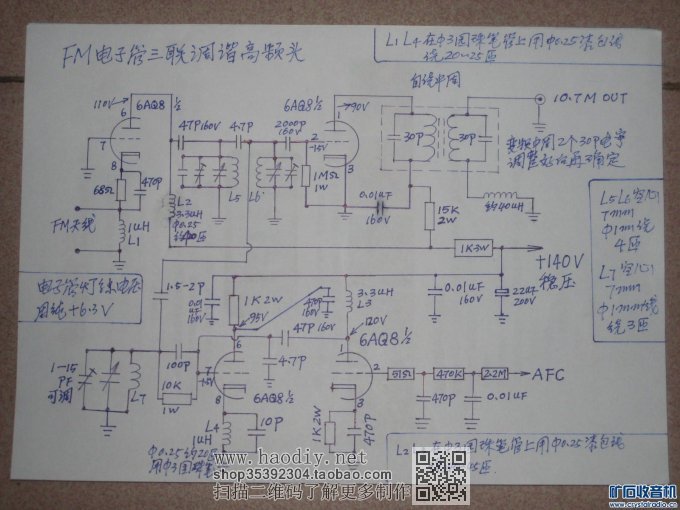 FM电子管三联调谐高频头
L1 L4 在Φ3圆珠笔管上用Φ0.25漆包线
绕20~25匝
自绕中周
110V
6AQ8 1/2
6
7
8
47P 160V
4.7P
2000P
160V
6AQ8 1/2
90V
1
2
-15V
3
30P
30P
10.7M OUT
变频中周2个30P电容
调整好后再确定
68Ω
470P
L2
3.3uH
Φ0.25
L5
L6
1MΩ
1W
0.01uF
160V
约40uH
FM天线
1uH
L1
15K
2W
1K3W
+140V
稳压
L5 L6 空心
7mm
Φ1mm线
4匝
L7空心
7mm
Φ1mm线
绕3匝
电子管灯丝电压
用纯+6.3V
1.5-2P
0.01
uF
160V
1K2W
95V
470P
160V
3.3uH
L3
0.01uF
160V
22uF
200V
47P 160V
120V
6AQ8 1/2
1-15
PF
可调
L7
100P
10K
1W
7
6
8
4.7P
6AQ8 1/2
1
2
3
51Ω
470K
2.2M
AFC
470P
0.01uF
L4
1uH
10P
1K2W
470P
www.haodiy.net
shop35392304.taobao.com
扫描二维码了解更多制作
矿石收音机
www.crystalradio.cn